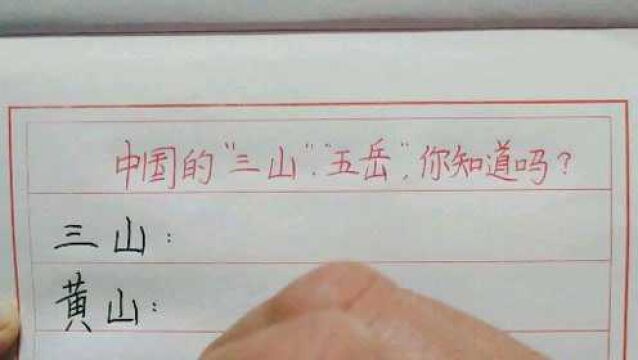 中国的“三山”、“五岳”,你知道吗?
三山:
黄山: